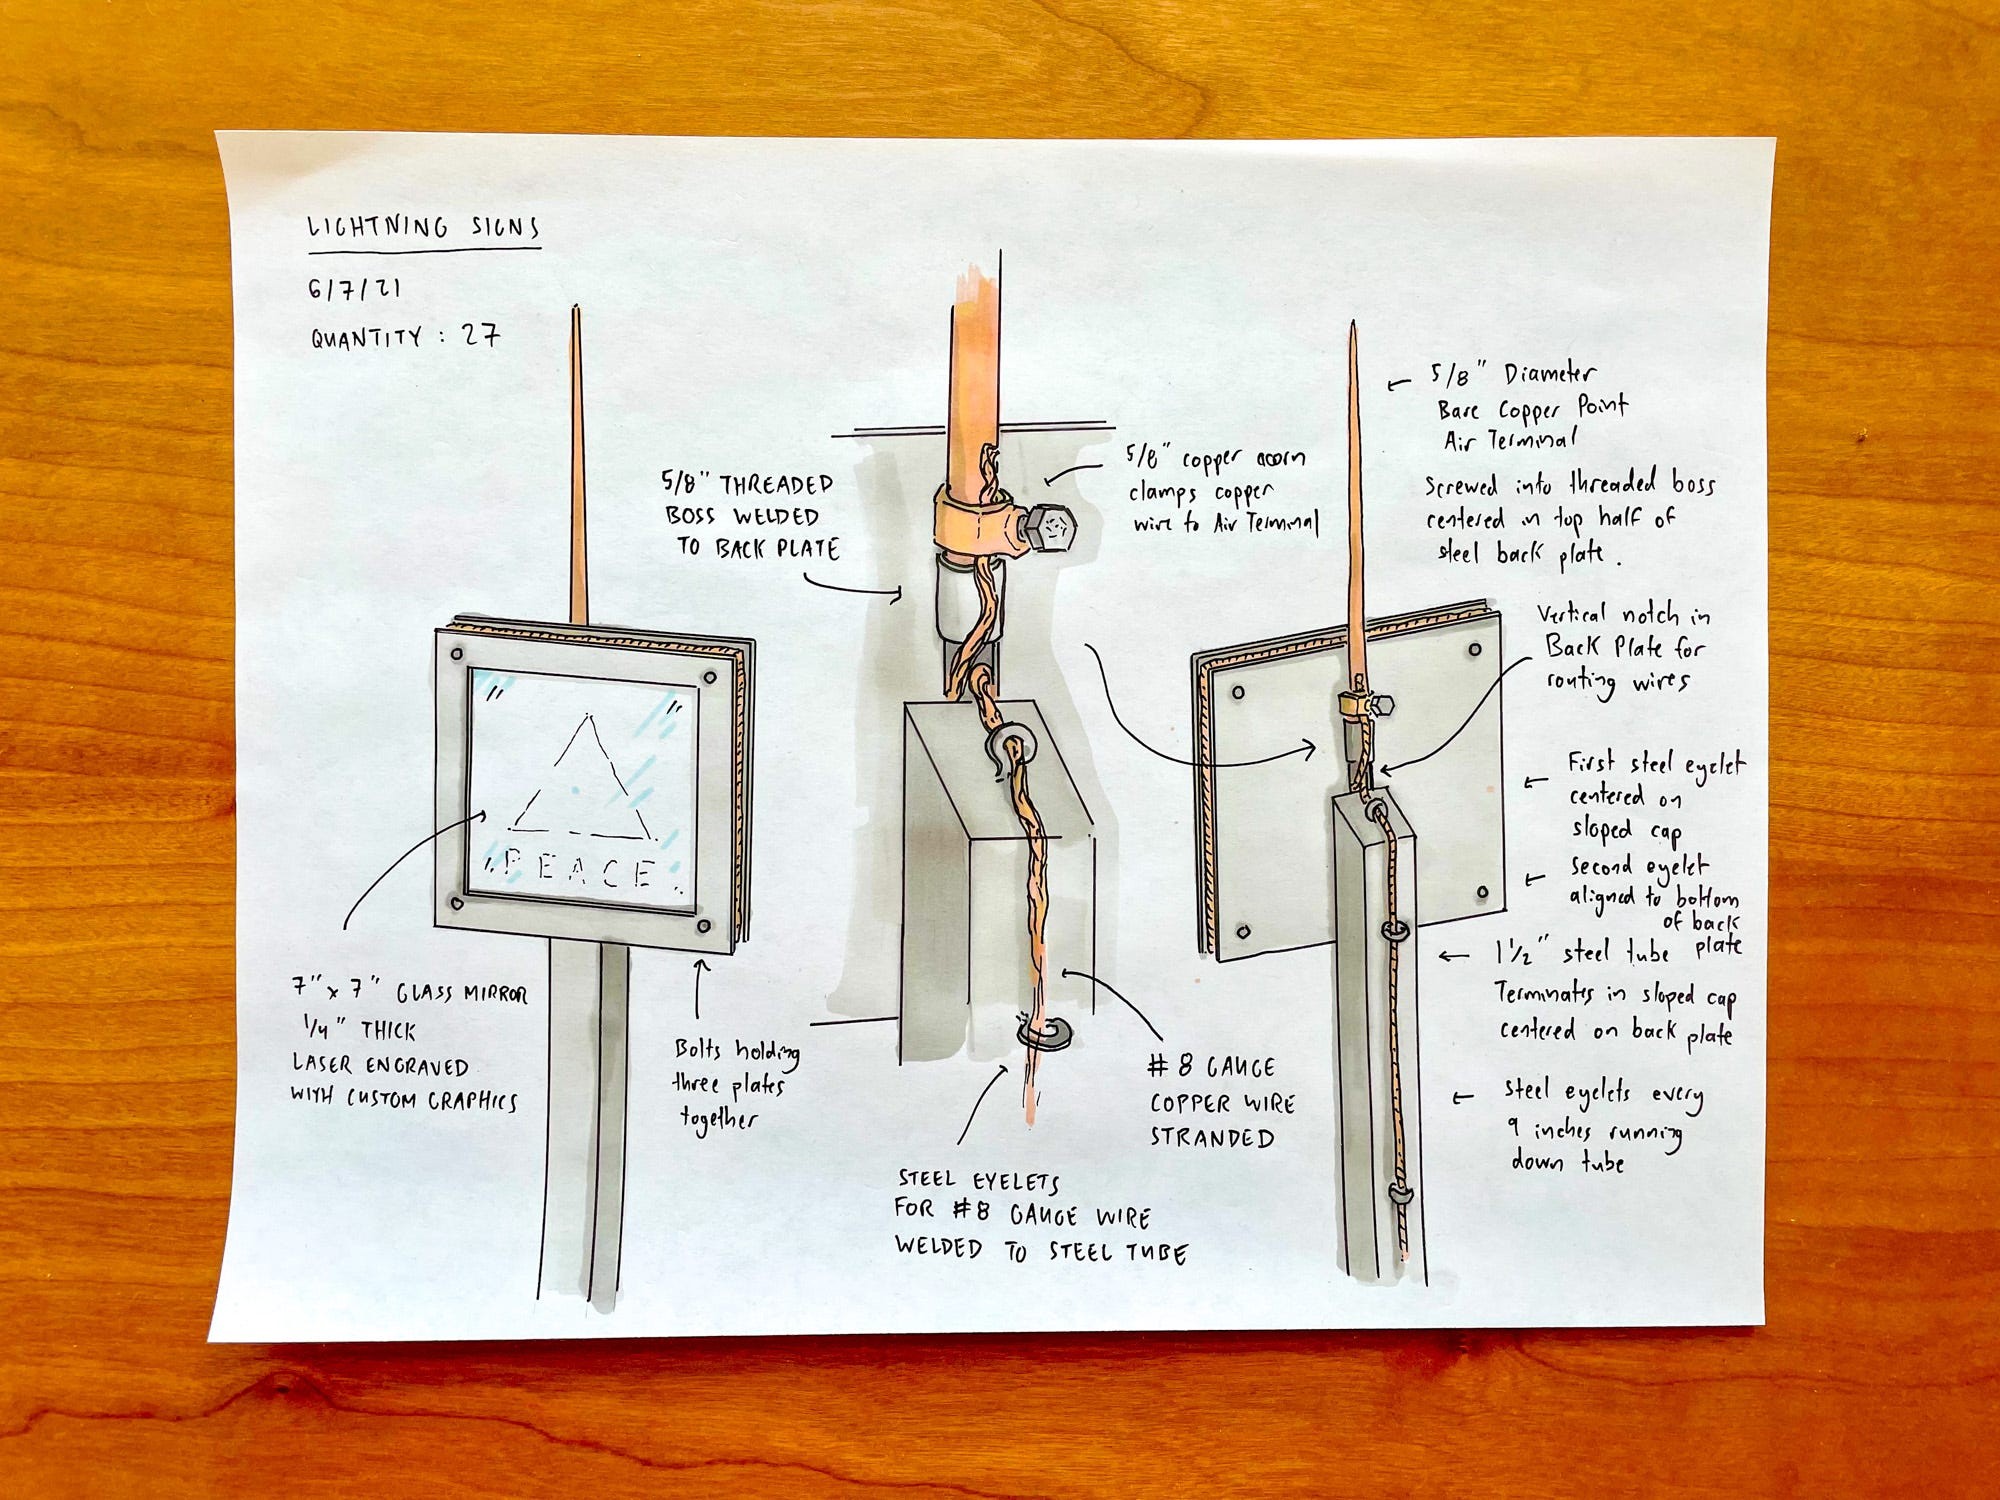 LIGHTNING SIGNS
6/7/21
QUANTITY : 27
5/8" THREADED
BOSS WELDED
TO BACK PLATE
5/8" copper acorn
clamps copper
wire to Air Terminal
5/8" Diameter
Bare Copper Point
Air Terminal
Screwed into threaded boss
centered in top half of
steel back plate.
Vertical notch in
Back Plate for
routing wires
First steel eyelet
centered on
sloped cap
second eyelet
aligned to bottom
of back
plate
1 1/2" steel tube
Terminates in sloped cap
centered on back plate
steel eyelets every
9 inches running
down tube
PEACE
7" x 7" GLASS MIRROR
1/4" THICK
LASER ENGRAVED
WITH CUSTOM GRAPHICS
Bolts holding
three plates
together
#8 GAUGE
COPPER WIRE
STRANDED
STEEL EYELETS
FOR #8 GAUGE WIRE
WELDED TO STEEL TUBE